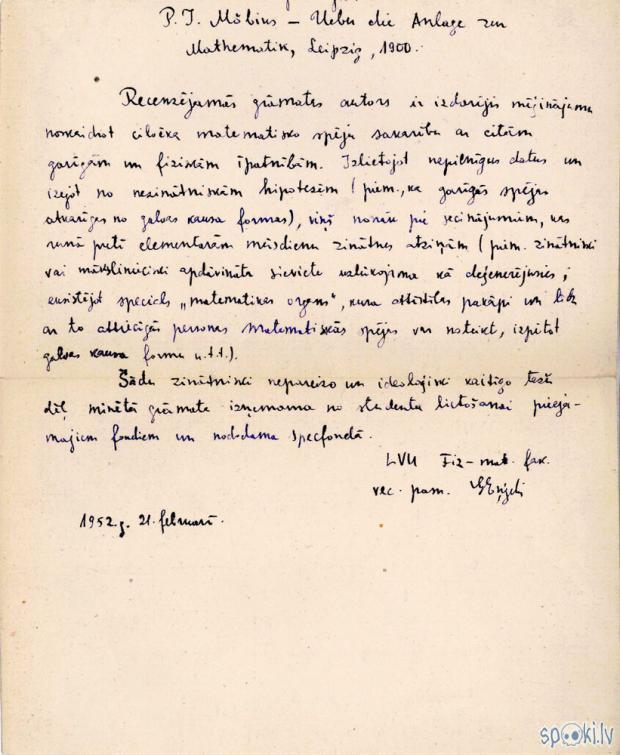 P. J. Möbius – Ueber die Anlage zur
Mathematik, Leipzig, 1900.
Recenzējamās grāmatas autors ir izdarījis mēģinājumu
noskaidrot cilvēka matemātisko spēju sakarību ar citām
garīgām un fiziskām īpatnībām. Izlietojot nepilnīgus datus un
izejot no nezinātniskām hipotezēm (piem., ka garīgās spējas
atkarīgas no galvas kausa formas), viņš nonāk pie secinājumiem, kas
runā pretī elementarām mūsdienu zinātnes atziņām (piem. zinātniski
vai mākslinieciski apdāvināta sieviete uzlūkojama kā deģenerējusies;
eksistējot speciāls „matematikas organs", kura attīstības pakāpi un līdz
ar to attiecīgās personas matematiskās spējas var noteikt, izpētot
galvas kausa formu u.t.t.).
Šādu zinātniski nepareizo un ideoloģiski kaitīgo težu
dēļ minētā grāmata izņemama no studentu lietošanai pieeja-
majiem fondiem un nododama specfondā.
LVU Fiz-mat. fak.
vec. pasn.
1952.g. 21. februarī.
spoki.lv